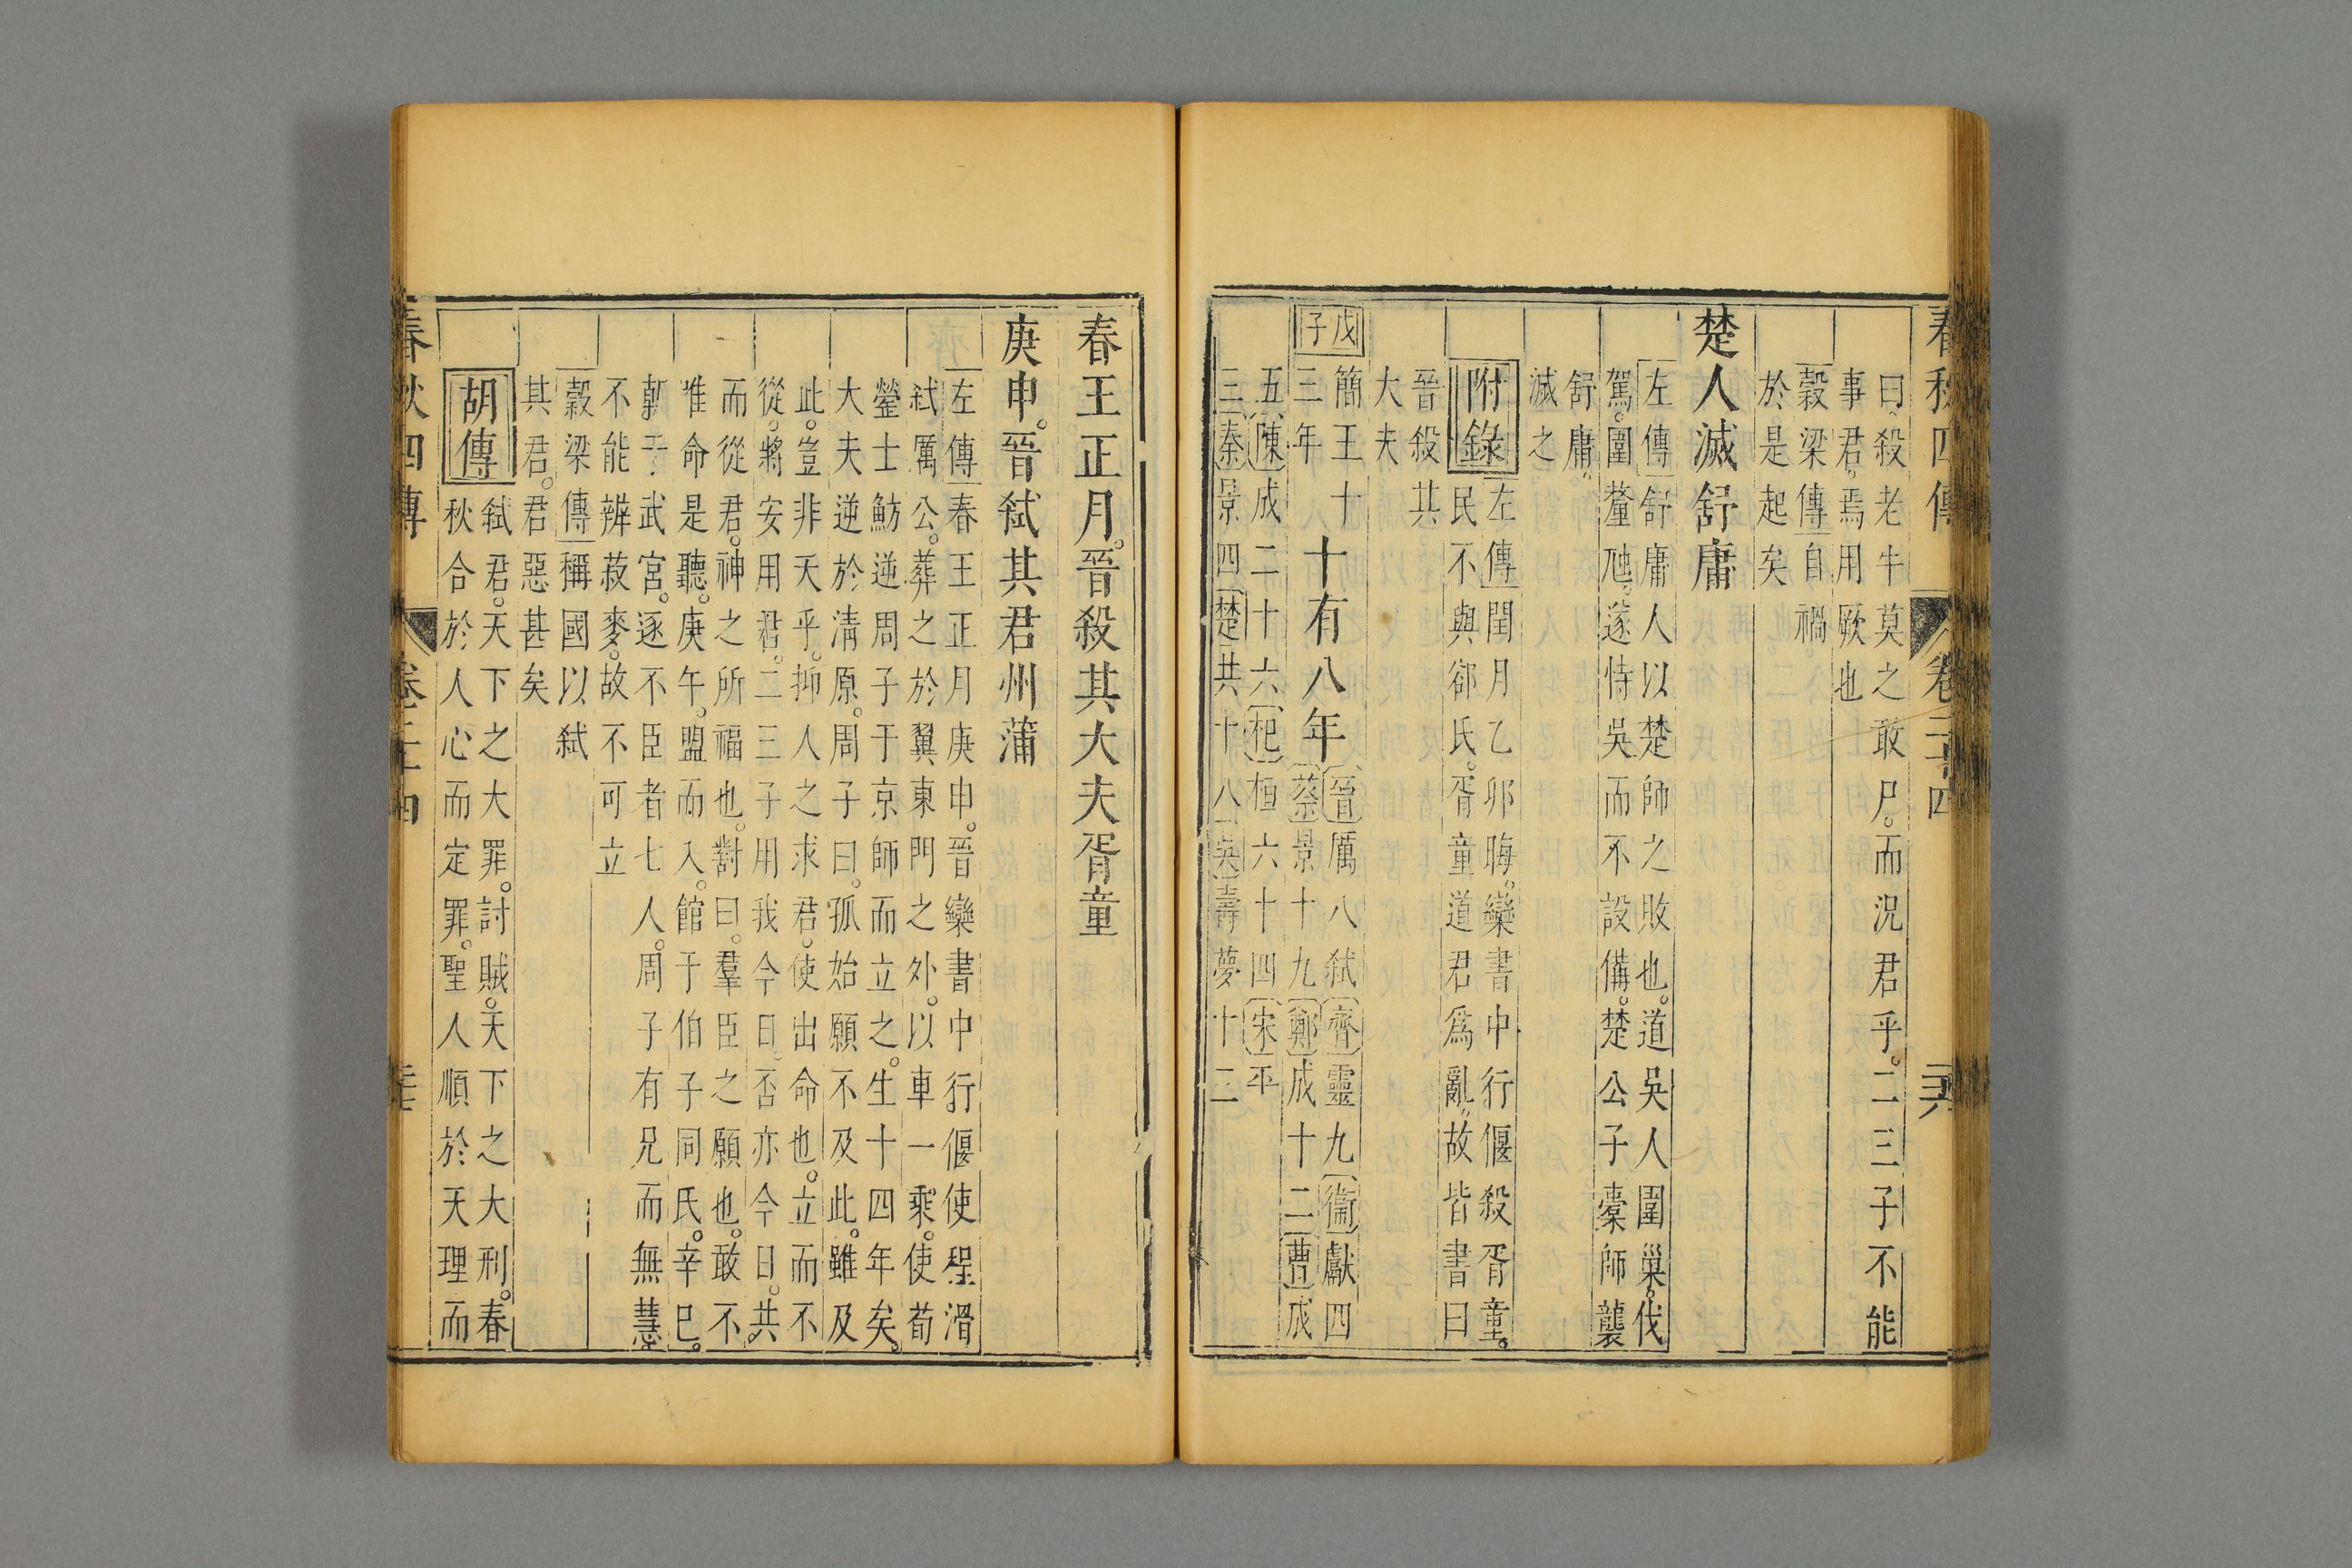 曰殺老牛莫之敢尸而況君乎二三子不能
事君焉用厥也
穀梁傳自禍
於是起矣
楚人滅舒庸
左傳舒庸人以楚師之敗也道吳人圍巢伐
駕圍釐虺遂恃吳而不設備楚公子橐師襲
舒庸
滅之
附錄
左傳閏月乙卯晦欒書中行偃殺胥童
民不與郤氏胥童道君爲亂故皆書曰
晉殺其
大夫
戊子
簡王十
三年
十有八年
晉厲八弒齊靈九衞獻四
蔡景十九鄭成十二曹成
五陳成二十六杞桓六十四宋平
三秦景四楚共十八吳壽夢十三
春王正月晉殺其大夫胥童
庚申晉弒其君州蒲
左傳春王正月庚申晉欒書中行偃使程滑
弒厲公葬之於翼東門之外以車一乘使荀
罃士魴逆周子于京師而立之生十四年矣
大夫逆於清原周子曰孤始願不及此雖及
此豈非天乎抑人之求君使出命也立而不
從將安用君二三子用我今日否亦今日共
而從君神之所福也對曰羣臣之願也敢不
唯命是聽庚午盟而入館于伯子同氏辛巳
朝于武宮逐不臣者七人周子有兄而無慧
不能辨菽麥故不可立
穀梁傳稱國以弒
其君君惡甚矣
胡傳
弒君天下之大罪討賊天下之大刑春
秋合於人心而定罪聖人順於天理而